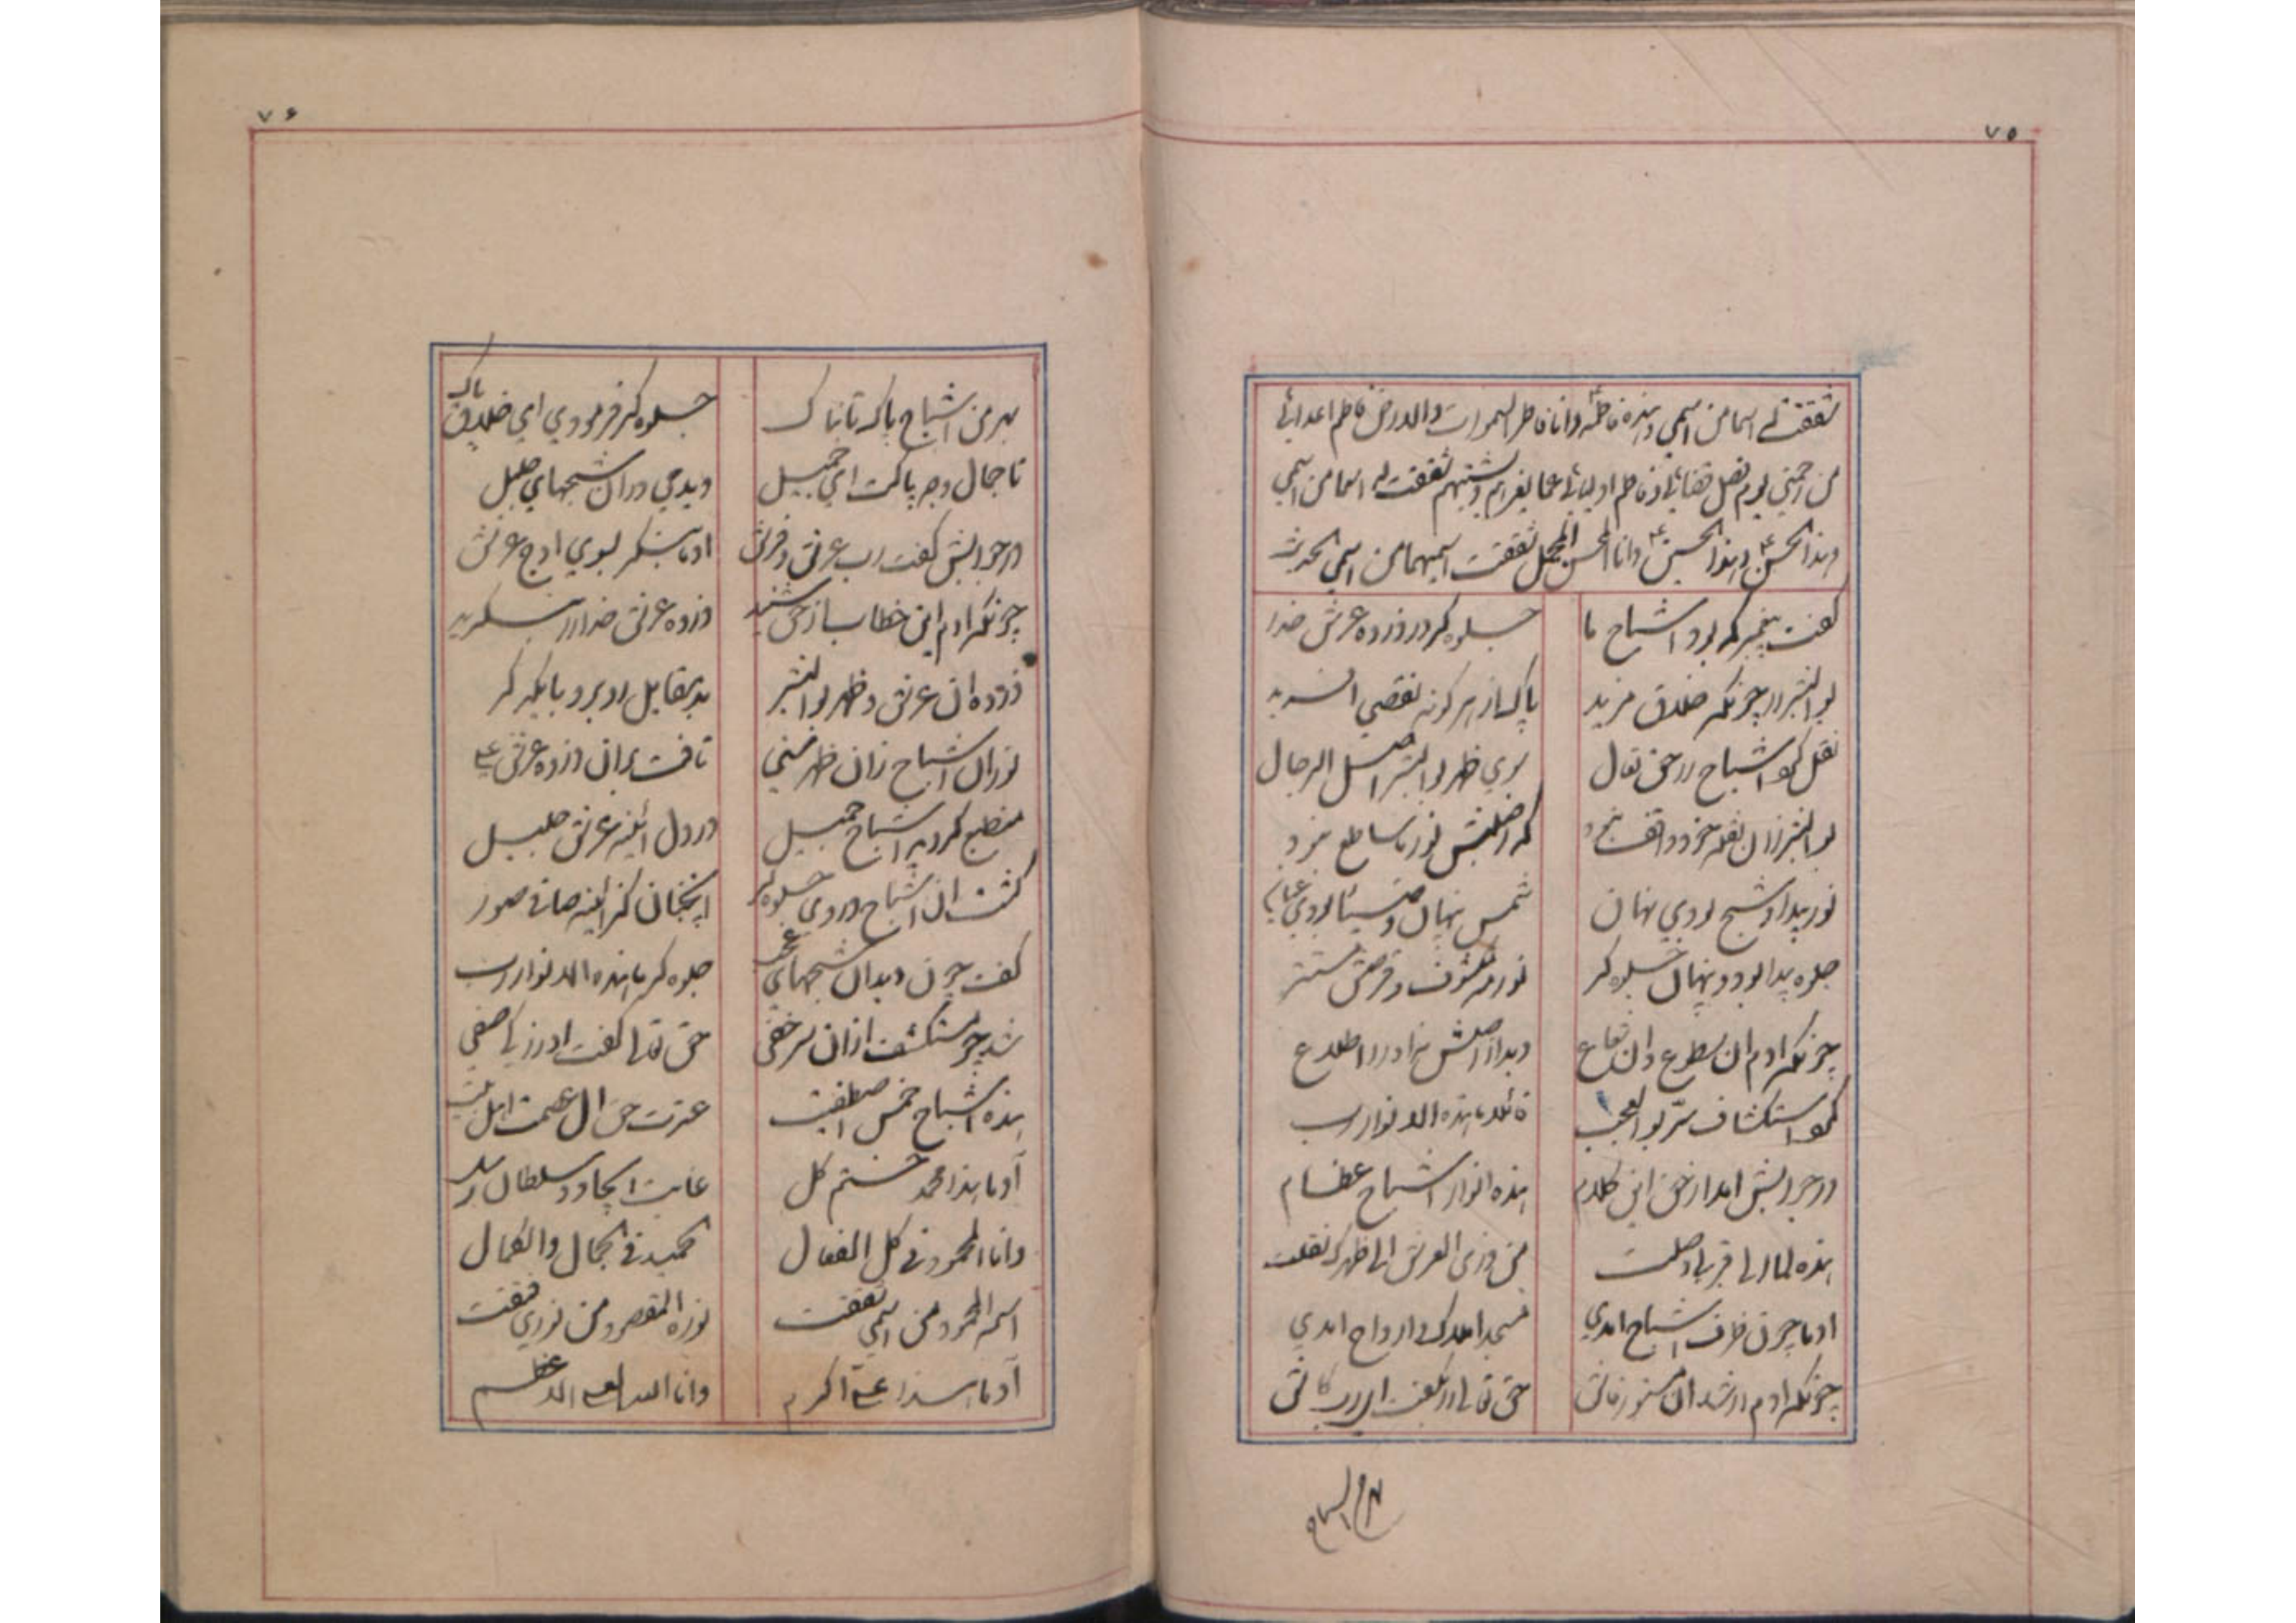 ٧٥
شققت له اسما من اسمی و هذه فاطمة و انا فاطر السموات والارض فاطم اعدائی
من رحمتی یوم فصل قضائی و فاطم اولیائی عما یعرهم و یشینهم شققت لها اسما من اسمی
و هذا الحسن و هذا الحسین و انا المحسن المجمل شققت اسمیهما من اسمی الحدیث
گفت پیغمبر که بود اشباح ما جلوه گر در ذروه عرش خدا
بوالبشر را چونکه خلاق مزید پاک از هر گونه نقصی آفرید
نقل کرد اشباح را حق تعال سوی ظهر بوالبشر اصل الرجال
بوالبشر زان نقله خود واقف نبود که از خلفش نور ما ساطع نمود
نور پیدا و شبح بودی نهان شمس پنهان و ضیا بودی عیان
جلوه پیدا بود و پنهان جلوه گر نور مکشوف و قرصش مستتر
چونکه آدم آن سطوع و آن شعاع دید از اصلش نبد او را اطلاع
کرد استکشاف سر بوالعجب قائلا ما هذه الانوار رب
در جوابش آمد از حق این کلام هذه انوار اشباح عظام
هذه لمارلی قربا وصلت من ذری العرش الی ظهرک نقلت
آدما چون ظرف اشباح آمدی مسجد املاک و ارواح آمدی
چونکه آدم ارشد آن مستور فاش حق تعالی را بگفت ای رب کاش
بهر من اشباح
٧۶
بهر من اشباح پاک تابناک جلوه گر فرمودی ای خلاق پاک
تا جمال وجه پاکت ای جمیل دیدمی در آن شبحهای جلیل
در جوابش گفت رب عرش و فرش آدما بنگر بسوی اوج عرش
چونکه آدم این خطاب از حق شنید ذروه عرش خدا را بنگرید
ذروه آن عرش و ظهر بوالبشر بد مقابل روبرو با یکدگر
نور آن اشباح زان ظهر سنی تافت بران ذروه عرش علی
منطبع گردید اشباح جمیل در دل آئینه عرش جلیل
گشت آن اشباح در وی جلوه گر آنچنان کز آینه صافی صور
گفت چون دید آن شبحهای عجب جلوه گر ما هذه الانوار رب
شد چو مستکشف از آن سر خفی حق تعالی گفت او را ز ای صفی
هذه اشباح خمس اصطفیت عترت حق آل عصمت اهل بیت
آدما هذا محمد ختم کل غایت ایجاد و سلطان رسل
و انا المحمود فی کل الفعال الحمید فی الجمال والکمال
اسمه المحمود من اسمی شققت نوره المقصود من نوری فتقت
آدما هذا علی اکرم و انا الله العلی الاعظم